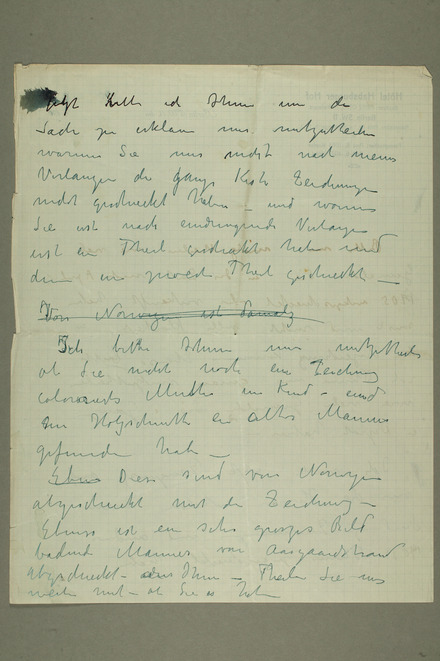 jetzt bitte ich Ihnen um die
Sache zu erklären uns mitzutheilen
warum Sie uns nicht nach meins
Verlangen die ganze Kiste Zeichnungen
nicht geschickt haben – und warum
Sie erst nach eindringende Verlangen
erst ein Theil geschickt haben und
dann ein zweite Theil geschickt –
Von Norwegen ist
Ich bitte Ihnen uns mitzutheilen
ob Sie nicht noch ein Zeichnung
colorierts Mutter und Kind – und
ein Holzschnitt ein altes Mannes
gefunden habe –
Diese sind von Norwegen
abgeschickt mit die Zeichnung –
Ebenso ist ein sehr grosses Bild
badende Männer von Aasgaardstrand
abgeschickt – Ihnen – Theilen Sie uns
mit – ob Sie es haben